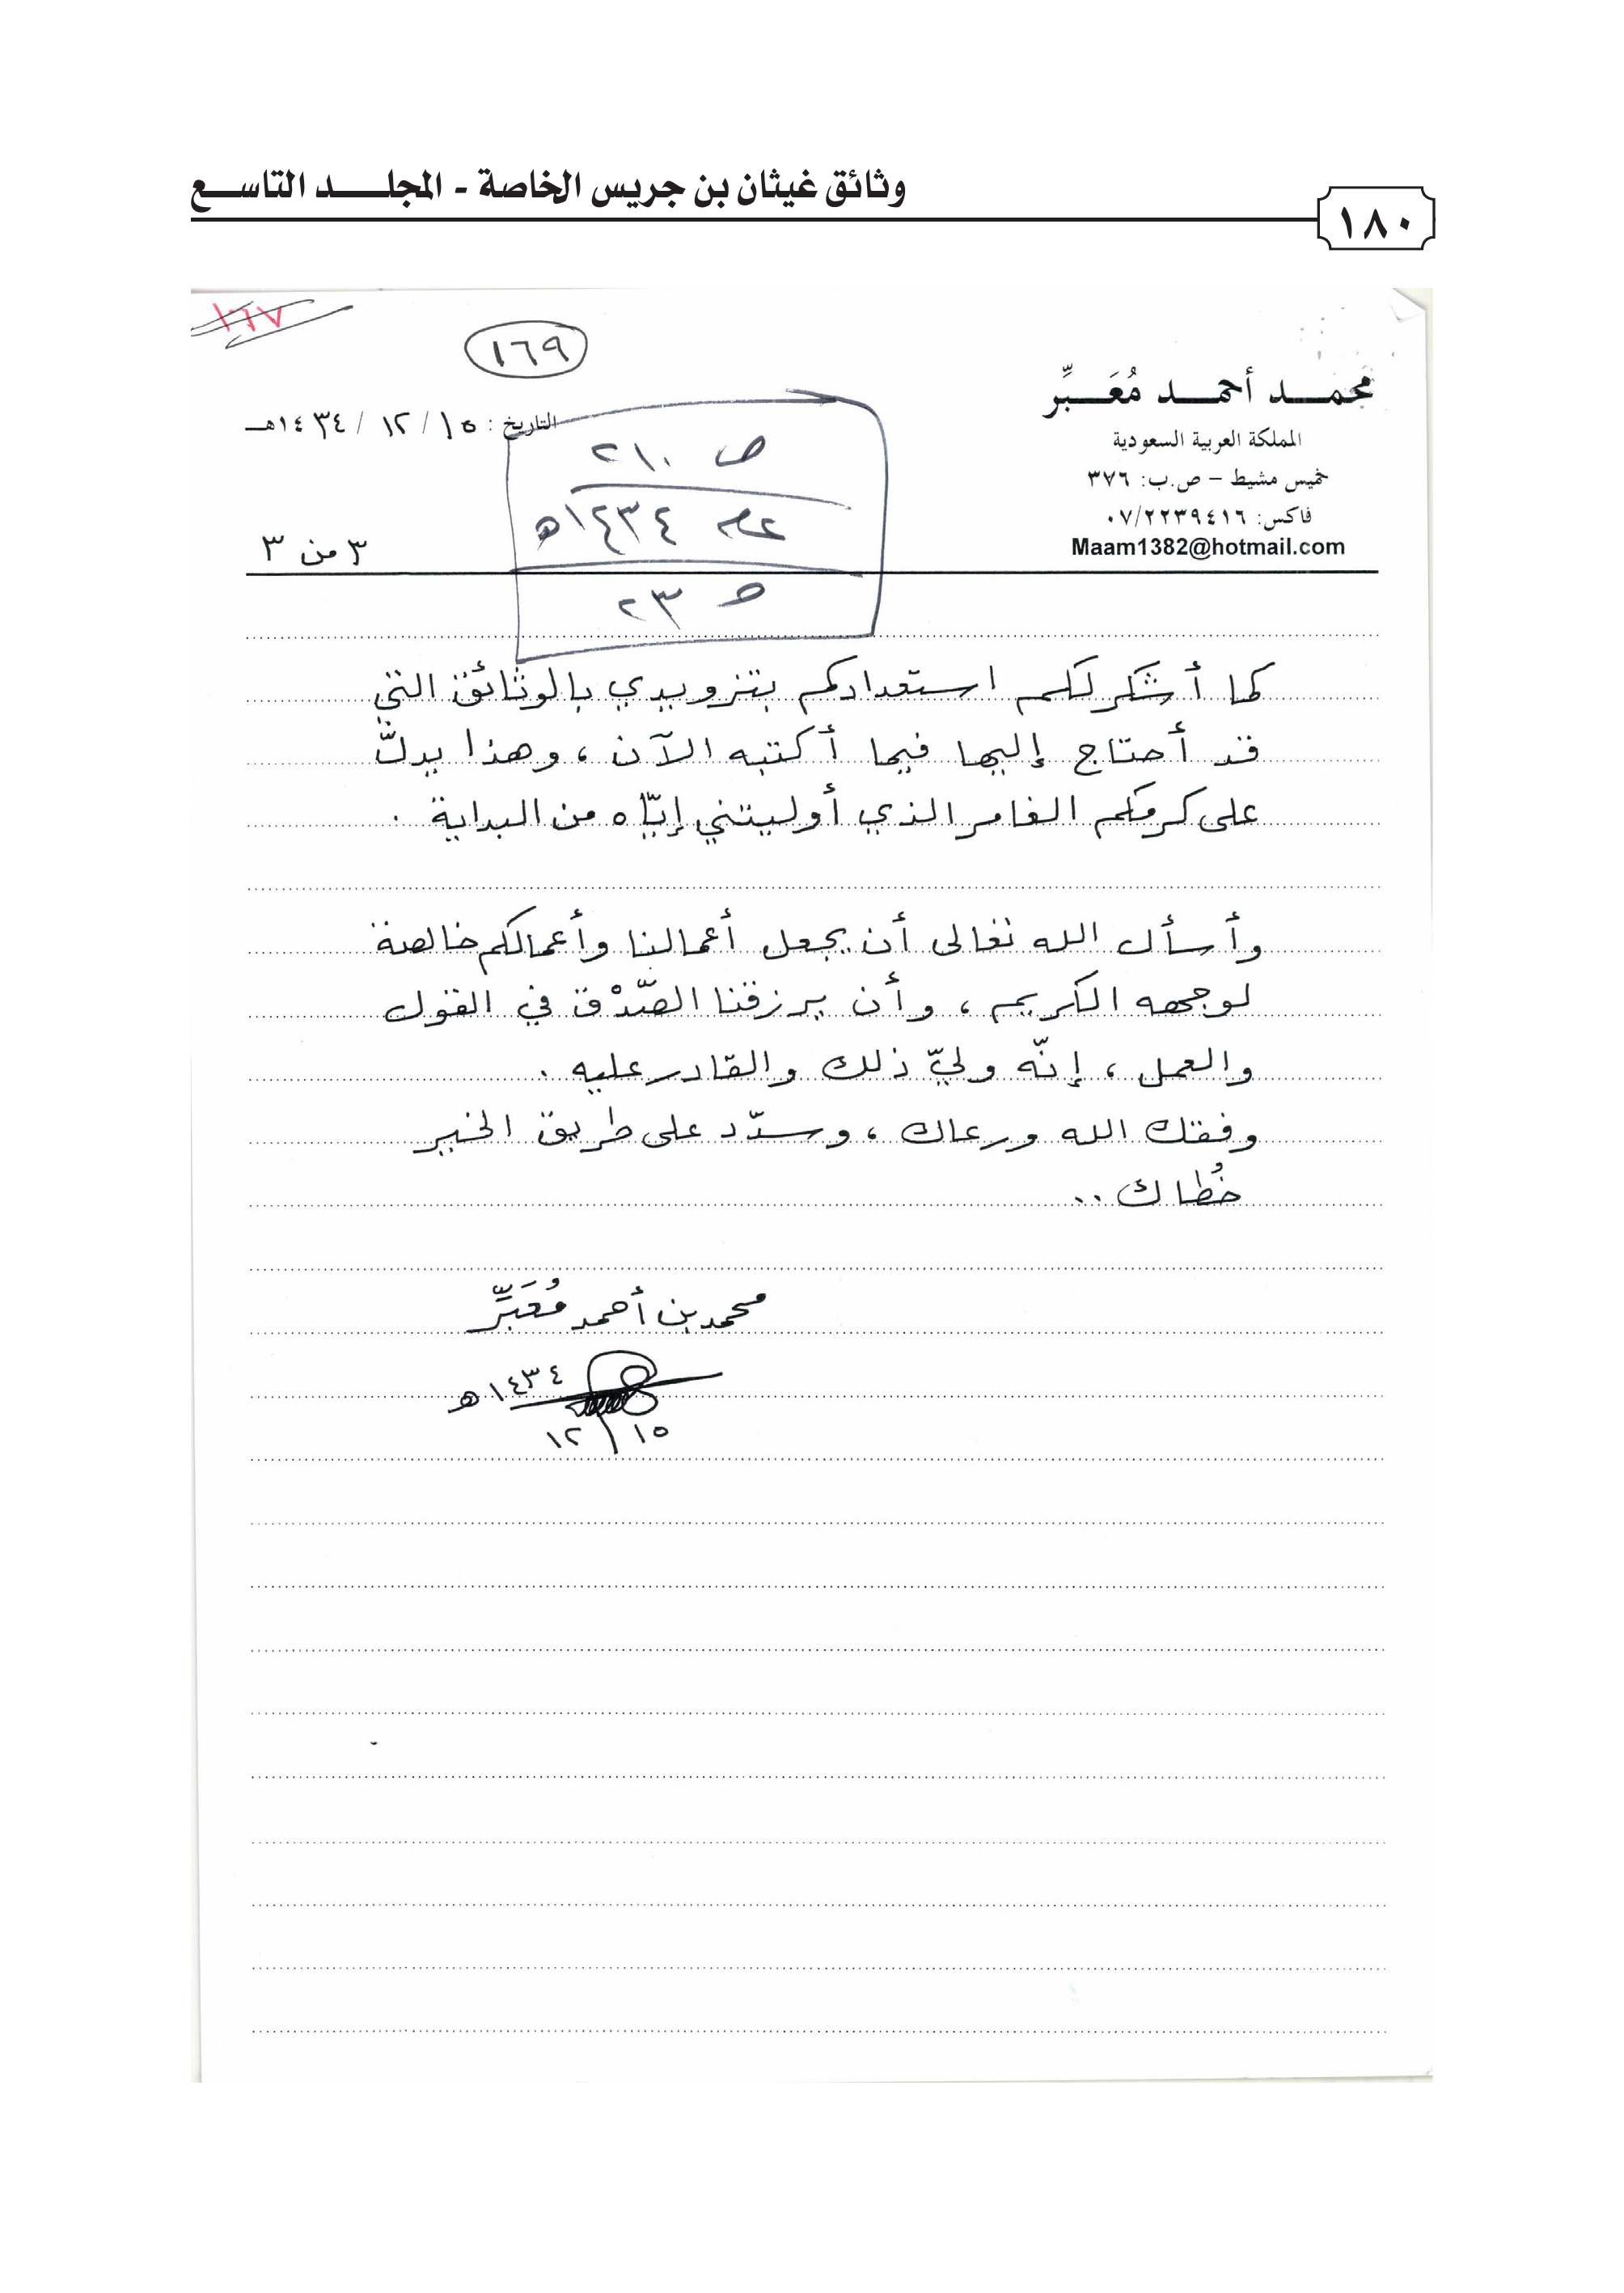 وثائق غيثان بن جريس الخاصة - المجلد التاسع
١٨٠
١٦٧
١٦٩
محمد أحمد مُعَبِّر
المملكة العربية السعودية
خميس مشيط – ص.ب: ٣٧٦
فاكس: ٠٧/٢٢٣٩٤١٦
Maam1382@hotmail.com
التاريخ: ١٥ / ١٢ / ١٤٣٤هـ
٣ من ٣
ص ٢١٠
١٤٣٤هـ
ص ٢٣
كما أشكر لكم استعدادكم بتزويدي بالوثائق التي
قد أحتاج إليها فيما أكتبه الآن ، وهذا يدلّ
على كرمكم الغامر الذي أوليتني إيّاه من البداية .
وأسأل الله تعالى أن يجعل أعمالنا وأعمالكم خالصة
لوجهه الكريم ، وأن يرزقنا الصّدْق في القول
والعمل ، إنّه وليّ ذلك والقادر عليه .
وفقك الله ورعاك ، وسدّد على طريق الخير
خُطاك ..
محمد بن أحمد مُعَبِّر
١٤٣٤هـ
١٥ / ١٢